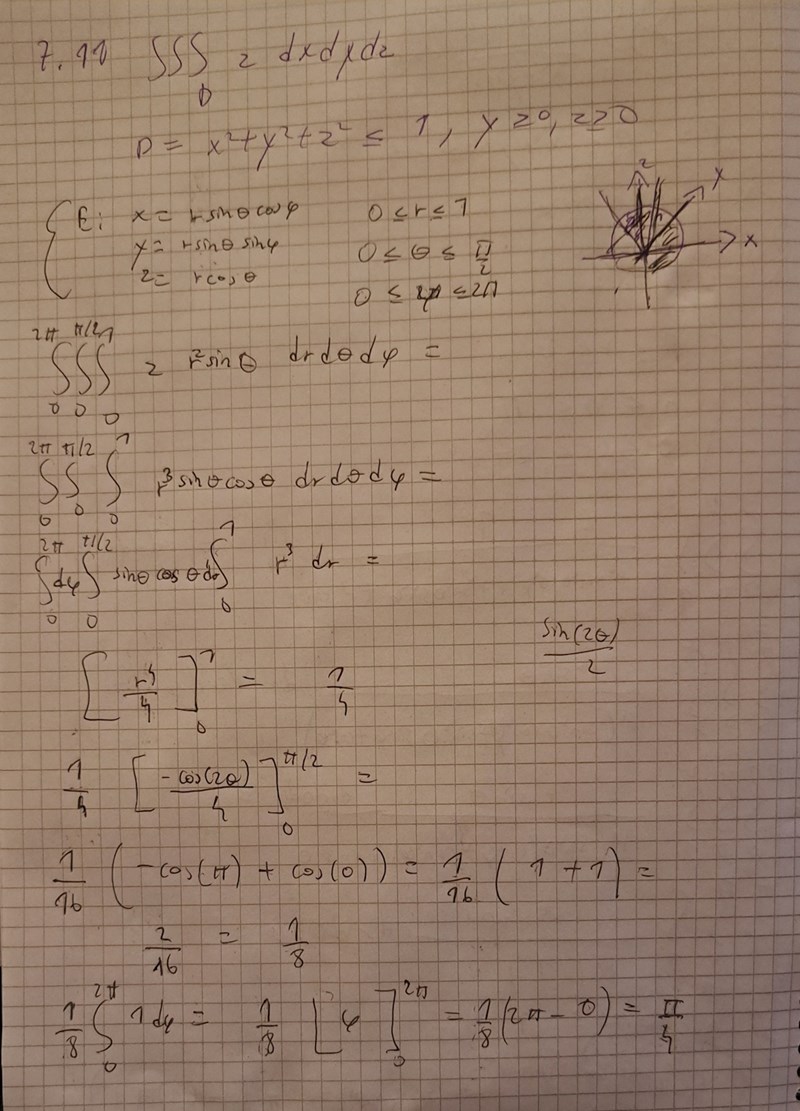 7.11 ∫∫∫_D z dxdydz
D = x²+y²+z² ≤ 1, y ≥ 0, z ≥ 0
z y x
E: x = r sinθ cosφ 0 ≤ r ≤ 1
y = r sinθ sinφ 0 ≤ θ ≤ π/2
z = r cosθ 0 ≤ φ ≤ 2π
∫₀^{2π} ∫₀^{π/2} ∫₀^1 z r² sinθ dr dθ dφ =
∫₀^{2π} ∫₀^{π/2} ∫₀^1 r³ sinθ cosθ dr dθ dφ =
∫₀^{2π} dφ ∫₀^{π/2} sinθ cosθ dθ ∫₀^1 r³ dr =
sin(2θ)/2
[r⁴/4]₀^1 = 1/4
1/4 [-cos(2θ)/4]₀^{π/2} =
1/16 (-cos(π) + cos(0)) = 1/16 (1 + 1) =
2/16 = 1/8
1/8 ∫₀^{2π} 1 dφ = 1/8 [φ]₀^{2π} = 1/8 (2π - 0) = π/4